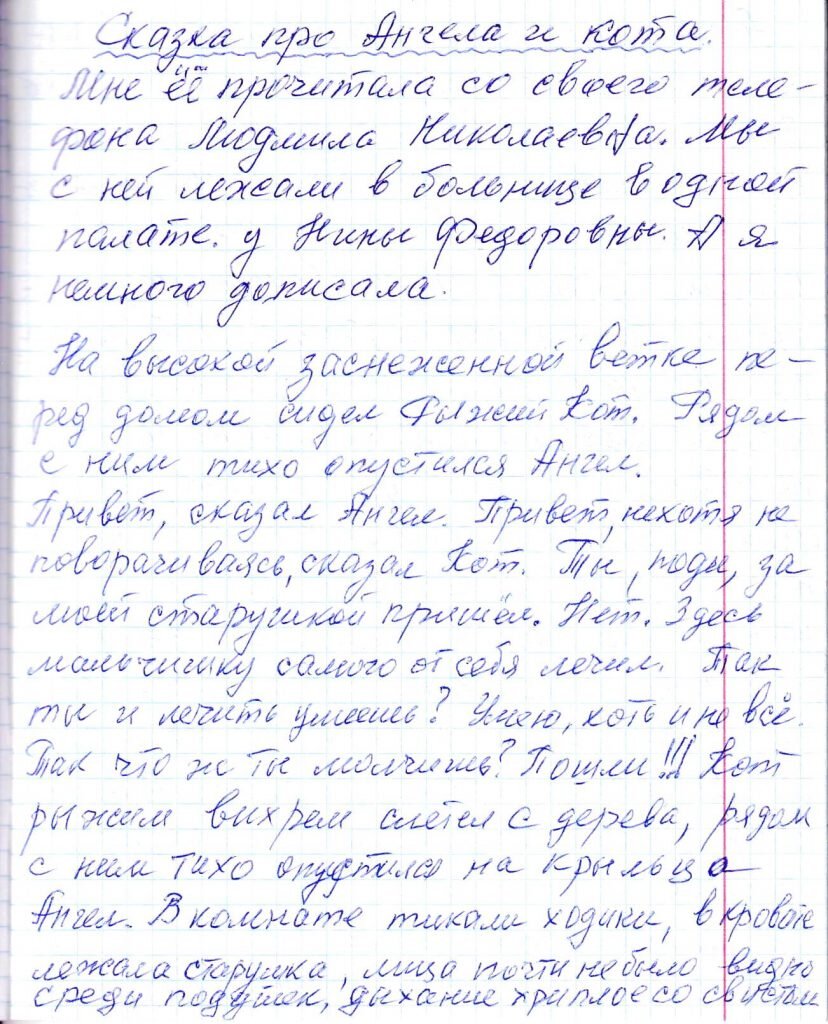 Сказка про Ангела и кота.
Мне её прочитала со своего теле-
фона Людмила Николаевна. Мы
с ней лежали в больнице в одной
палате. у Нины Федоровны. А я
немного дописала.
На высокой заснеженной ветке пе-
ред домом сидел Рыжий Кот. Рядом
с ним тихо опустился Ангел.
Привет, сказал Ангел. Привет, нехотя не
поворачиваясь, сказал Кот. Ты, поди, за
моей старушкой пришёл. Нет. Здесь
мальчишку самого от себя лечил. Так
ты и лечить умеешь? Умею, хоть и не всё.
Так что ж ты молчишь? Пошли!!! Кот
рыжим вихрем слетел с дерева, рядом
с ним тихо опустился на крыльцо
Ангел. В комнате тикали ходики, в кровате
лежала старушка, лица почти не было видно
среди подушек, дыхание хриплое со свистом